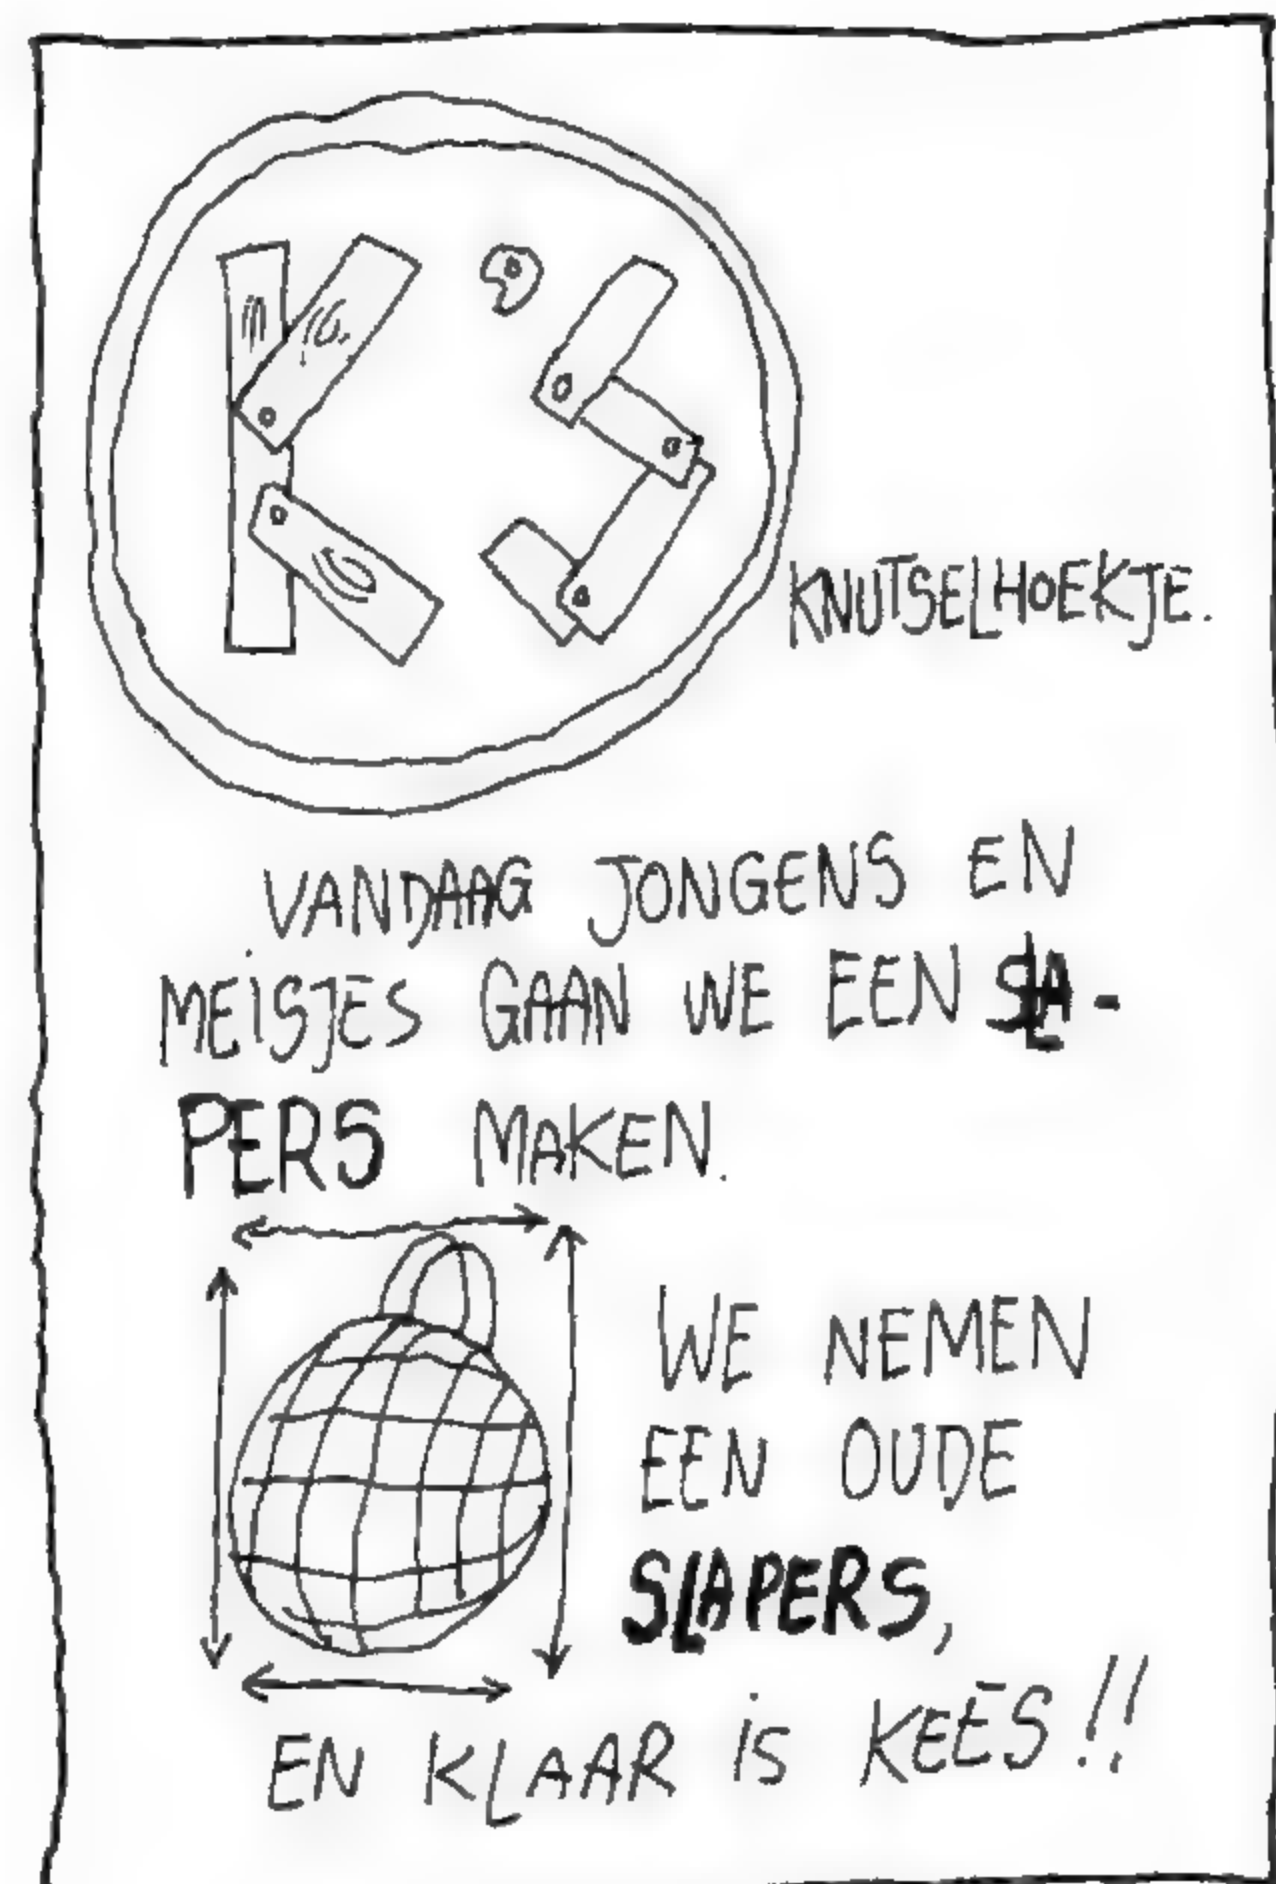 K'S
KNUTSELHOEKJE.
VANDAAG JONGENS EN
MEISJES GAAN WE EEN SLA-
PERS MAKEN.
WE NEMEN
EEN OUDE
SLAPERS,
EN KLAAR IS KEES!!